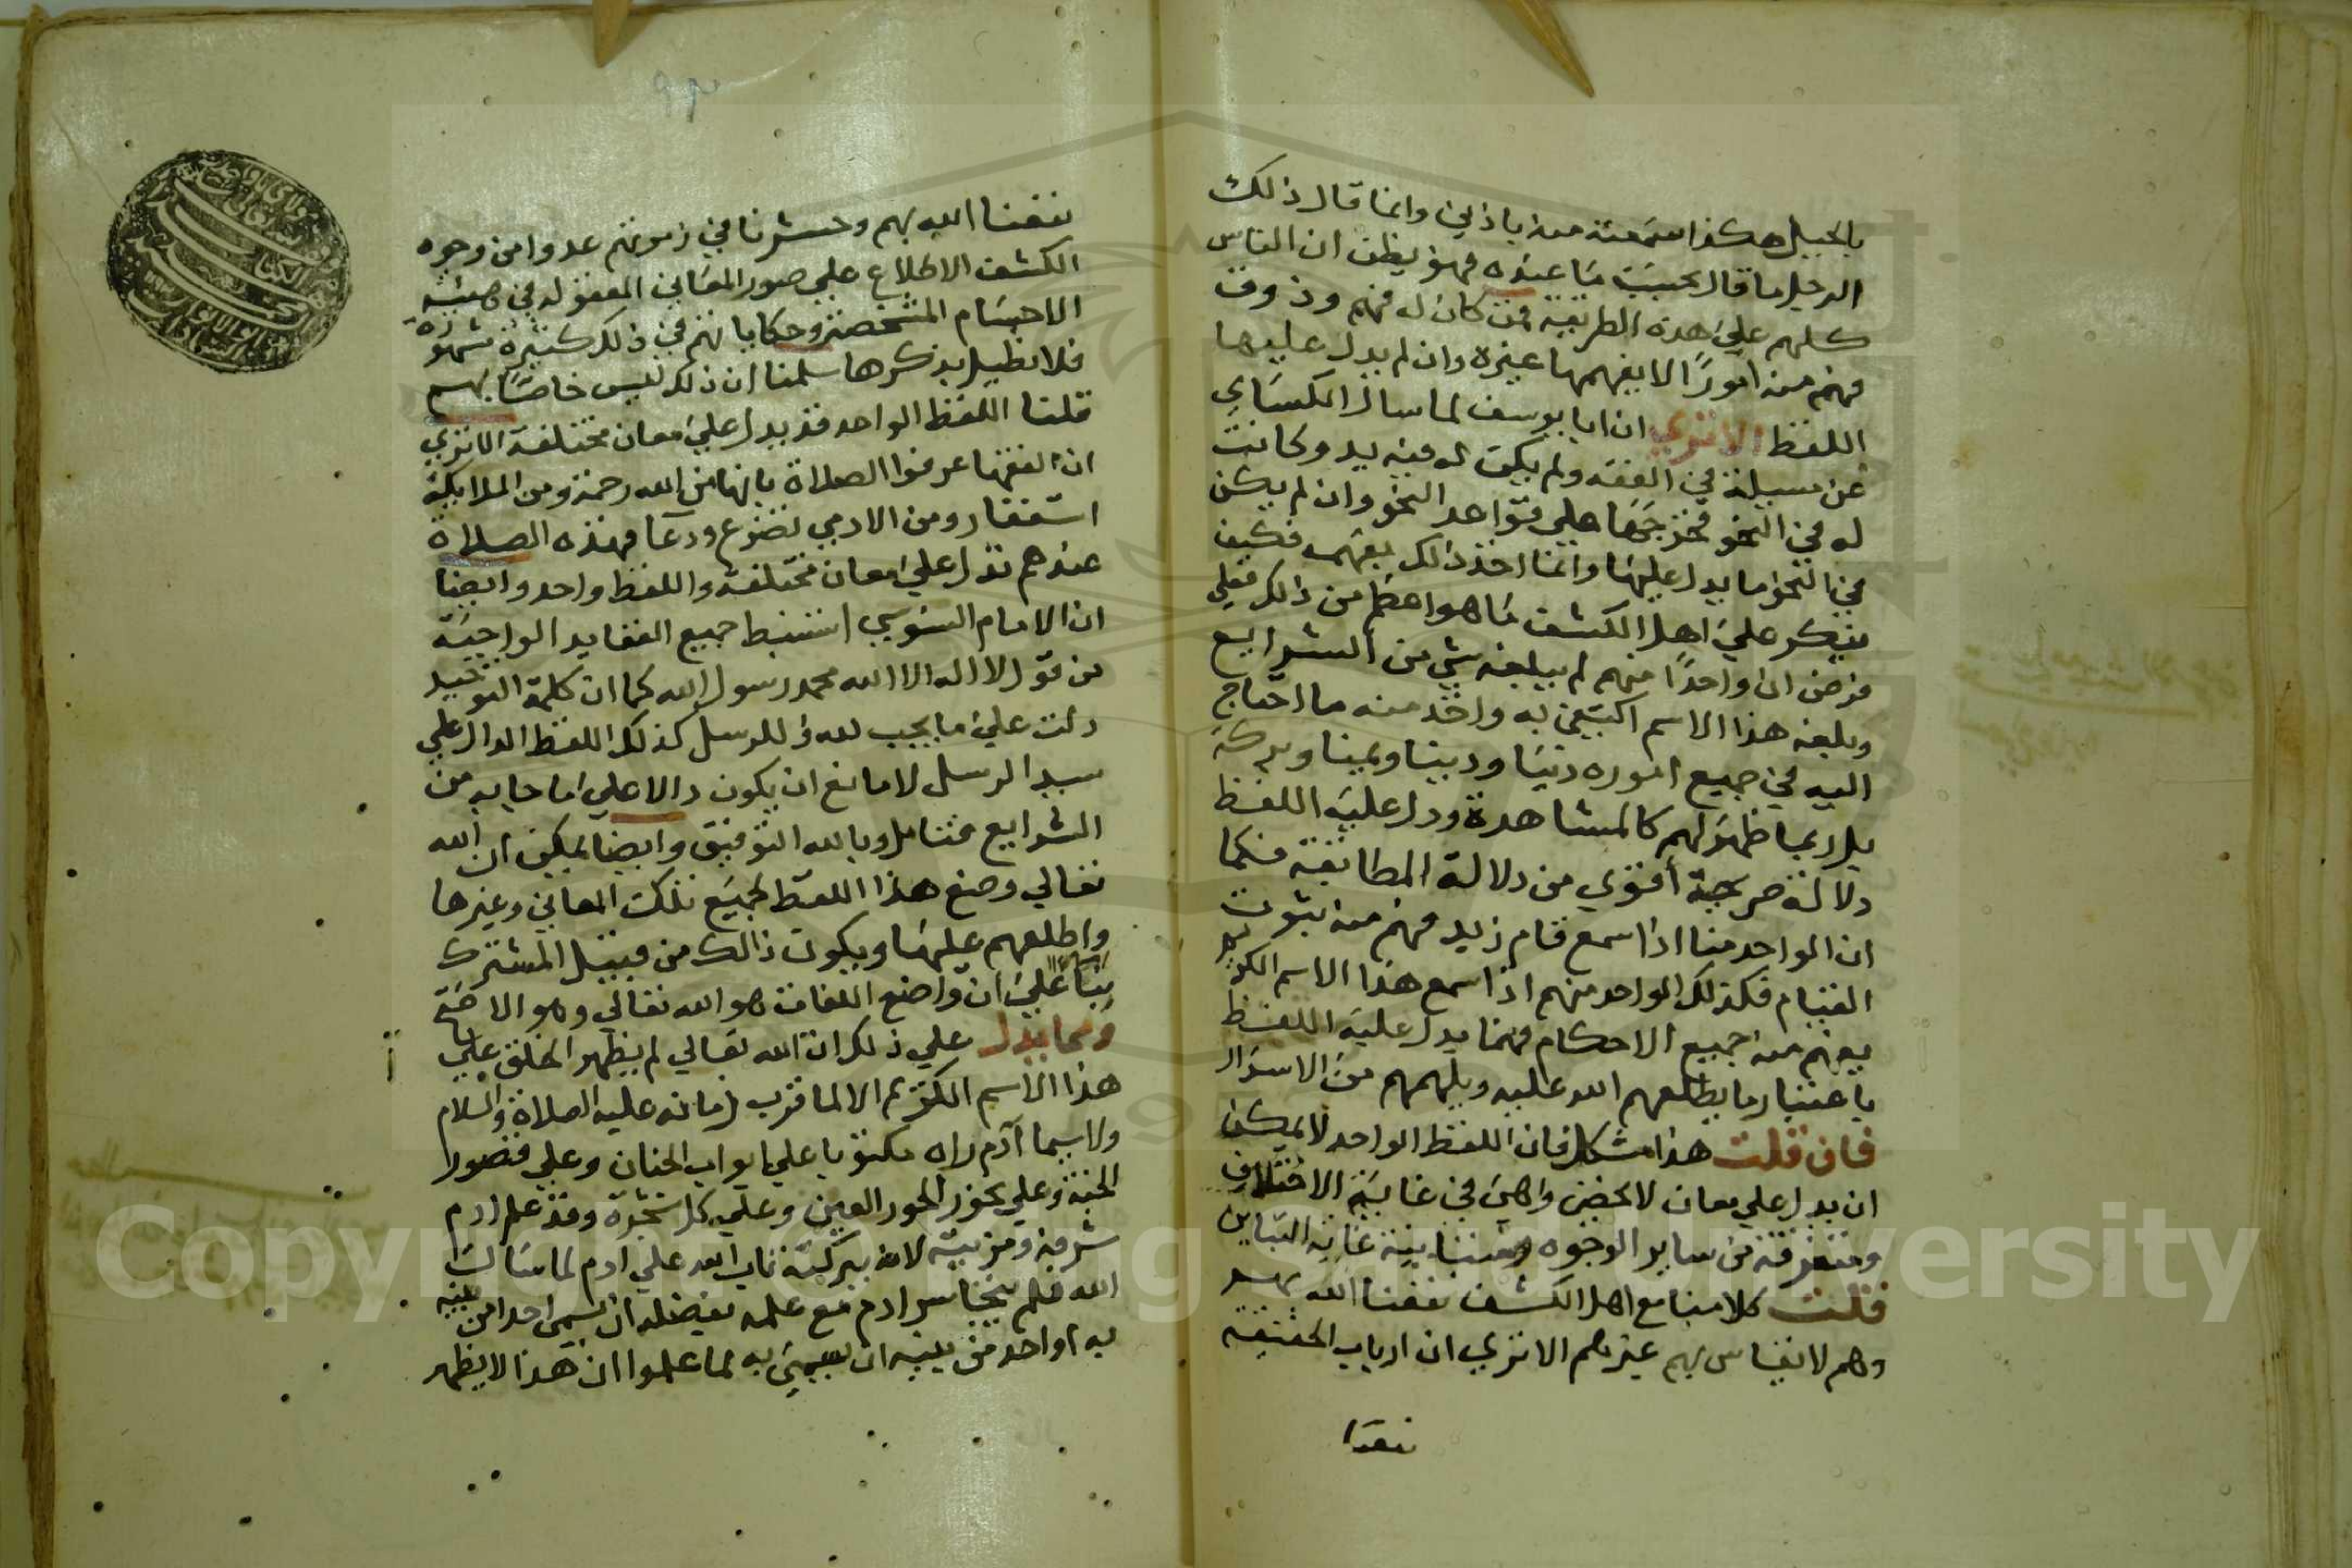 بالجبيل هكذا سمعته منه باذني وانما قال ذلك
الرجل ما قال بحسب ما عنده فهو يظن ان الناس
كلهم علي هذه الطريقة فمن كان له فهم وذوق
فهم منه امورًا لا يفهمها غيره وان لم يدل عليها
اللفظ الا تري ان ابا يوسف لما سال الكساي
عن مسيلة في الفقه ولم يكن له فيه يد وكانت
له في النحو فخرجها علي قواعد النحو وان لم يكن
في النحو ما يدل عليها وانما اخذ ذالك بفهمه فكيف
ينكر علي اهل الكشف ما هو اعظم من ذلك فعلي
فرض ان واحدًا منهم لم يبلغه شي من الشرايع
وبلغه هذا الاسم اكتفي به واخذ منه ما احتاج
اليه في جميع اموره دنيا ودينا وبركة
بل ربما ظهر لهم كالمشاهدة ودل عليه اللفظ
دلالة صريحة أقوي من دلالة المطابقة فكما
ان الواحد منا اذا سمع قام زيد فهم منه ثبوت
القيام فكذلك الواحد منهم اذا سمع هذا الاسم الكريم
يفهم منه جميع الاحكام فهما يدل عليه اللفظ
باعتبار ما يطلعهم الله عليه ويلهمهم من الاسرار
فان قلت هذا مشكل فان اللفظ الواحد لا يمكن
ان يدل علي معان لا تحصي واهي في غاية الاختلاف
ومتفرقة من ساير الوجوه ومتباينة غاية التباين
قلت كلامنا مع اهل الكشف نفعنا الله بهم
وهم لا يقاس بهم غيرهم الا تري ان ارباب الحقيقة
نفعنا
نفعنا الله بهم وحشرنا في زمرتهم عدوا من وجوه
الكشف الاطلاع علي صور المعاني المعقوله في هيئة
الاجسام المتشخصة وحكاياتهم في ذلك كثيرة شهيرة
فلا نطيل بذكرها سلمنا ان ذلك ليس خاصًا بهم
قلنا اللفظ الواحد قد يدل علي معان مختلفة الا تري
ان الفقها عرفوا الصلاة بانها من الله رحمة ومن الملايكة
استغفار ومن الادمي تضرع ودعا فهذه الصلاة
عندهم تدل علي معان مختلفة واللفظ واحد وايضا
ان الامام السنوسي استنبط جميع العقايد الواجبة
من قول لا اله الا الله محمد رسول الله كما ان كلمة التوحيد
دلت علي ما يجب لله وللرسل كذلك اللفظ الدال علي
سيد الرسل لا مانع ان يكون دالا علي ما جا به من
الشرايع فتامل وبالله التوفيق وايضا يمكن ان الله
تعالي وضع هذا اللفظ لجميع تلك المعاني وغيرها
واطلعهم عليها ويكون ذالك من قبيل المشترك
بنا علي ان واضع اللغات هو الله تعالي وهو الاصح
ومما يدل علي ذلك ان الله تعالي لم يظهر الخلق علي
هذا الاسم الكريم الا لما قرب زمانه عليه الصلاة والسلام
ولا سيما آدم راه مكتوبا علي ابواب الجنان وعلي قصور
الجنة وعلي نحور الحور العين وعلي كل شجرة وقد علم ادم
شرفه ومزيته لانه ببركته تاب الله علي ادم لما سال
الله فلم يتجاسر ادم مع علمه بفضله ان يسمي احدا من بنيه
به او احد من بنيه ان يسمي به لما علموا ان هذا لا يظهر
Copyright © King Saud University